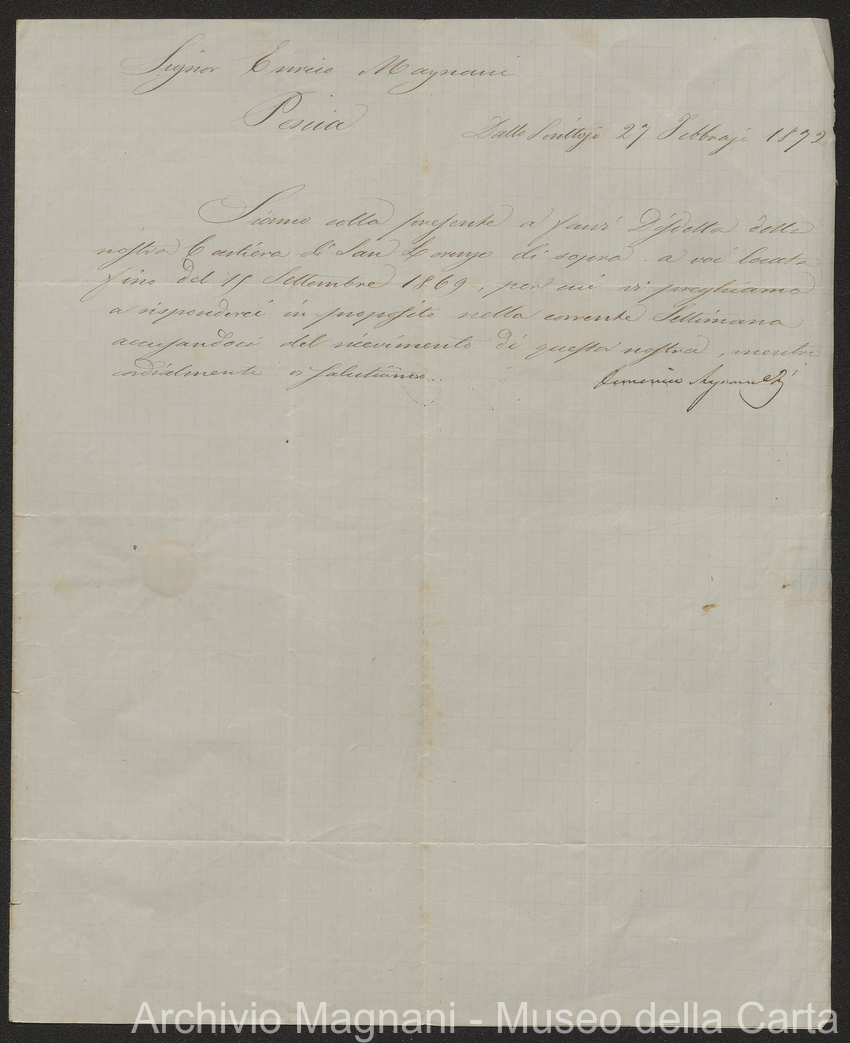 Signor Enrico Magnani
Pescia
Dallo Scrittojo 27 Febbrajo 1872
Siamo colla presente a farvi Disdetta della
nostra Cartiera di San Lorenzo di sopra a voi locata
fino del 15 Settembre 1869, per cui vi preghiamo
a risponderci in proposito nella corrente Settimana
accusandoci del ricevimento di questa nostra, mentre
cordialmente vi salutiamo.
Archivio Magnani - Museo della Carta